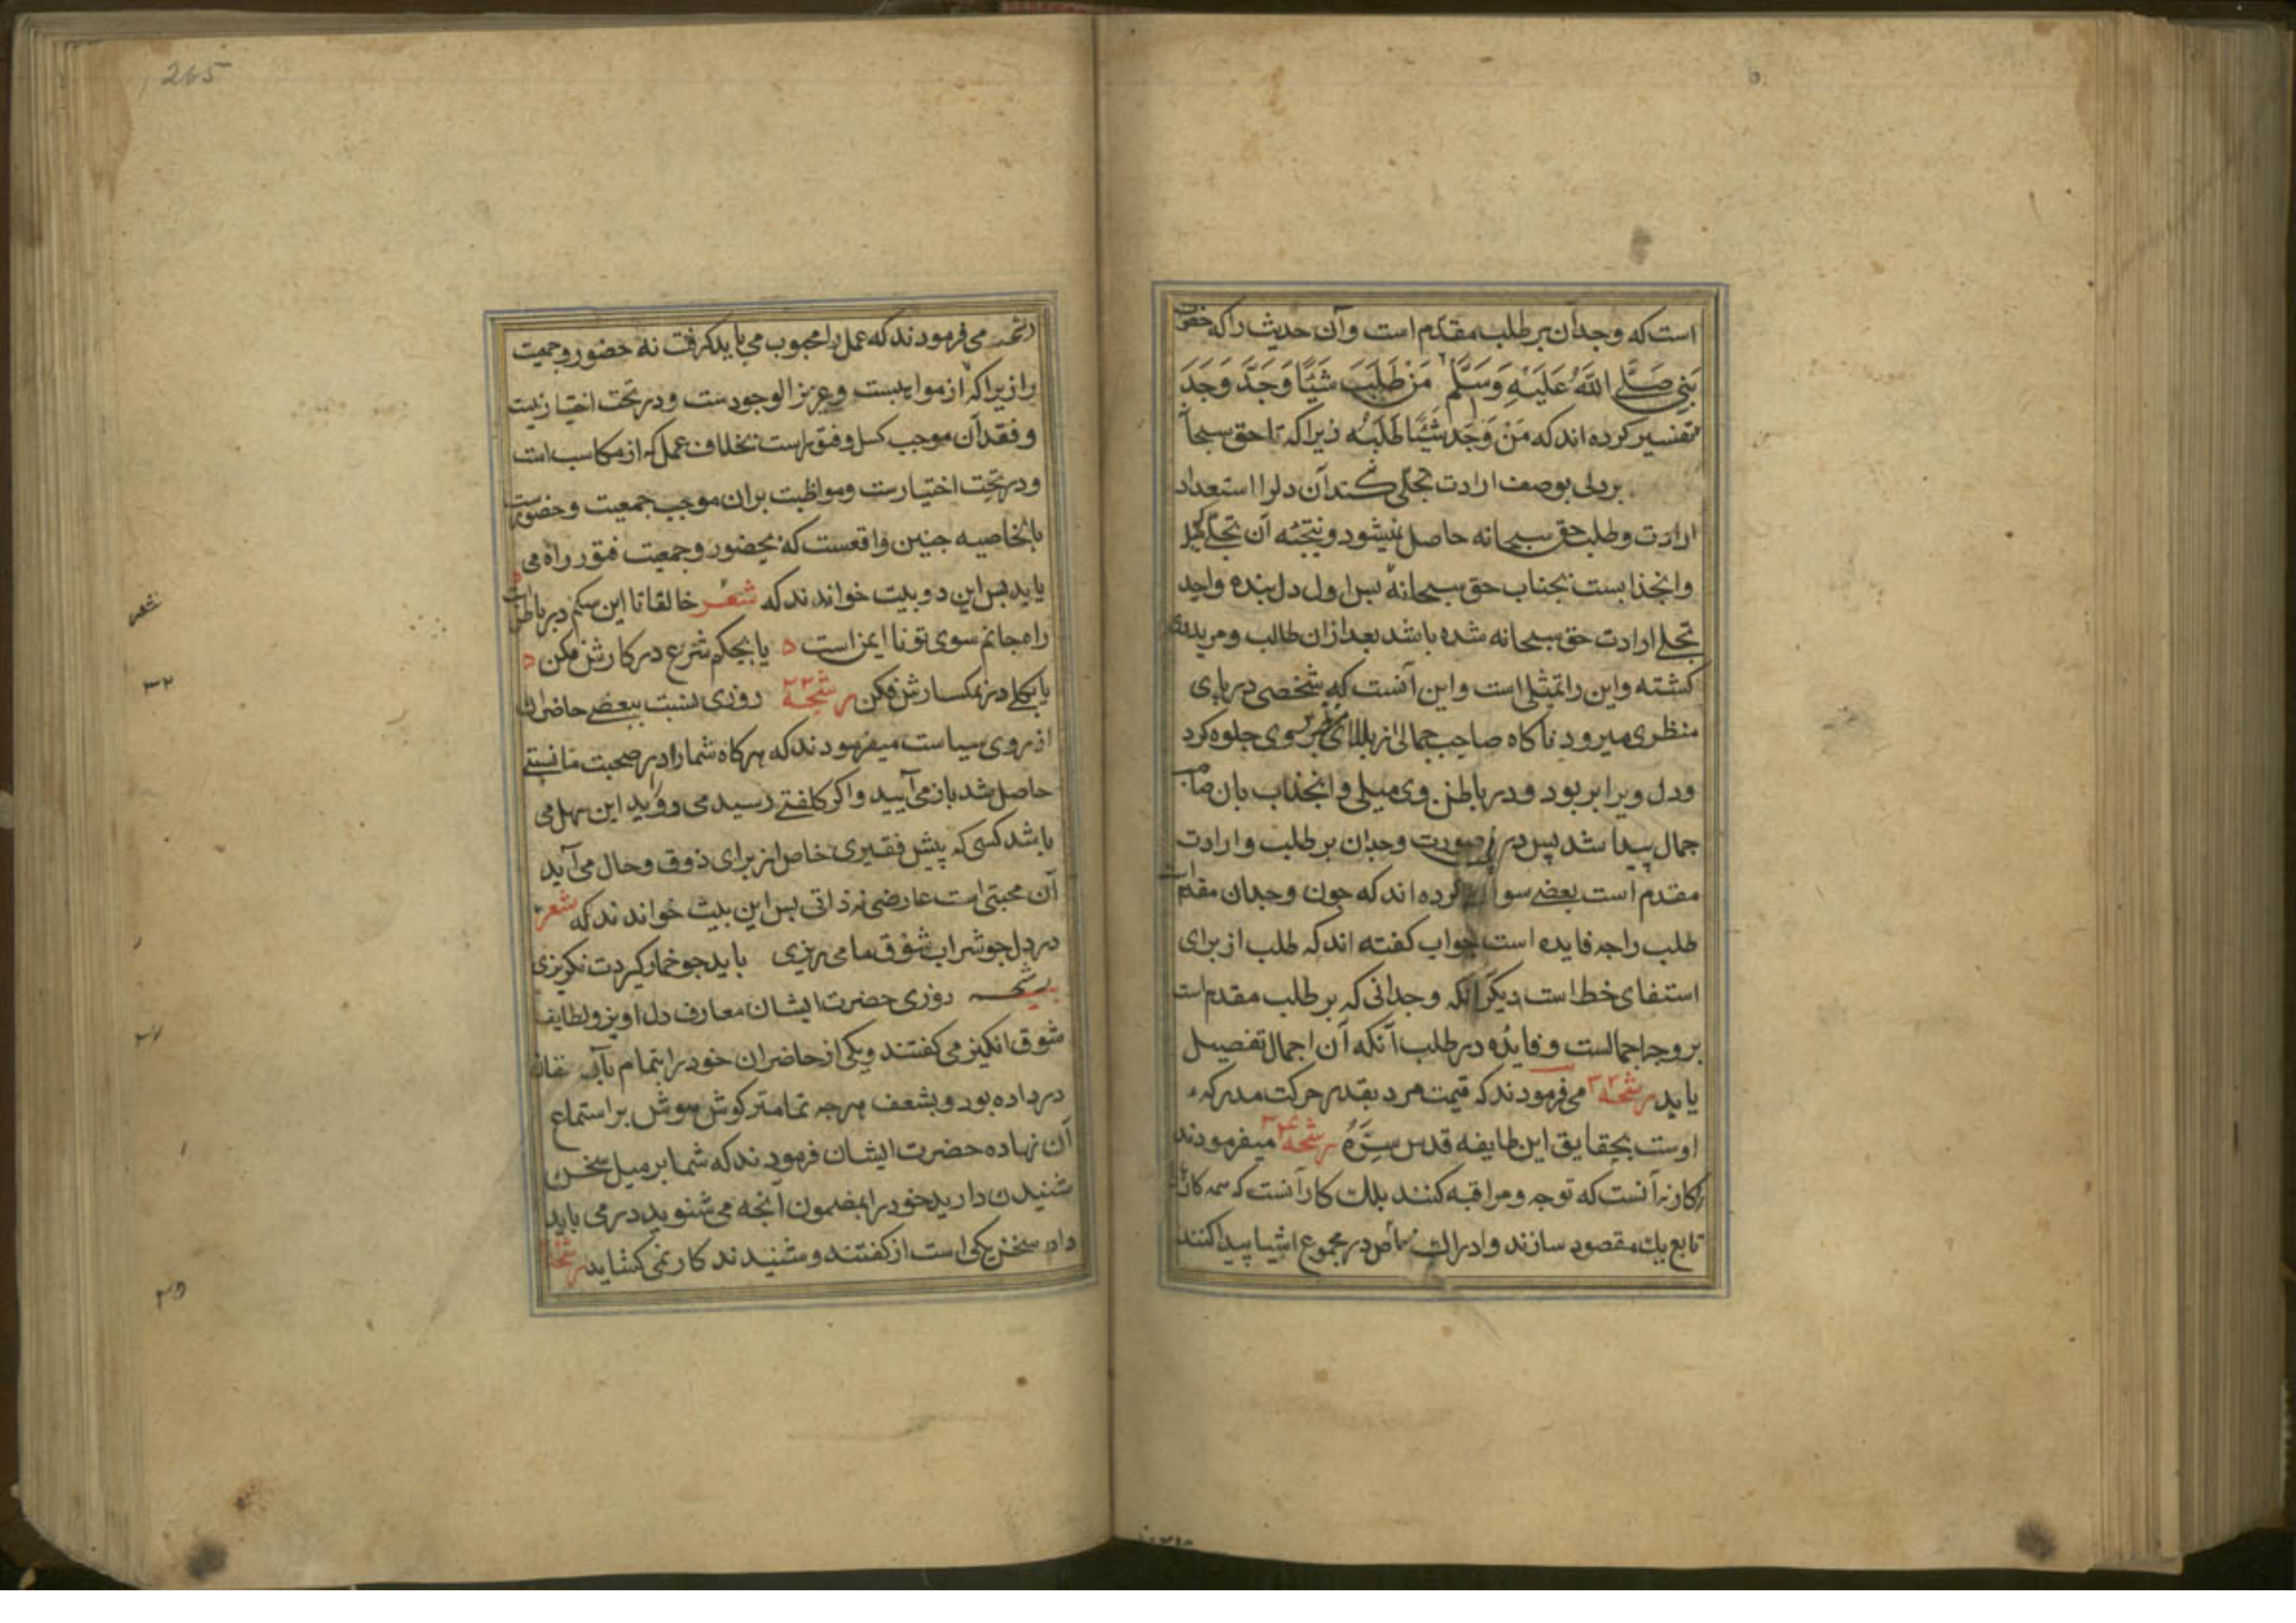 است که وجدان بر طلب مقدم است وآن حدیث را که حضرت
نبی صَلَّی اللَّهُ عَلَیْهِ وَسَلَّمْ مَنْ طَلَبَ شَیْئًا وَجَدَّ وَجَدَ
تفسیر کرده اند که مَنْ وَجَدَ شَیْئًا طَلَبَهُ زیرا که تا حق سبحا
بر دلی بوصف ارادت تجلّی نکند آن دلرا استعداد
ارادت وطلب حق سبحانه حاصل نمیشود ونتیجهٔ آن تجلّی
وانجذابست بجناب حق سبحانه بس اول دل بنده واجد
تجلی ارادت حق سبحانه شده باشد بعد ازان طالب ومرید
کشته واین را تمثیلی است واین آنست که شخصی در پای
منظری میرود ناکاه صاحب جمالی از بالای سوی جلوه کرد
ودل ویرا بربود ودر باطن وی میلی وانجذاب بان صا
جمال پیدا شد پس درین صورت وجدان بر طلب وارادت
مقدم است بعضی سوال کرده اند که جون وجدان مقدم است
طلب را جه فایده است جواب کفته اند که طلب از برای
استفای خط است دیکر آنکه وجدانی که بر طلب مقدم است
بر وجه اجمالست وفایده در طلب آنکه آن اجمال تفصیل
یابد رشحه ۳۲ می فرمودند که قیمت مرد بقدر حرکت مدرکه
اوست بحقایق این طایفه قدس سِرَّهُ رشحه میفرمودند
کار نه آنست که توجه ومراقبه کنند بلک کار آنست که همه کارها
تابع یك مقصود سازند وادراك خاص در مجموع اشیا پیدا کنند
265
رشحه می فرمودند که عمل را محبوب می باید کرفت نه حضور وجمعیت
را زیرا که از مواهبست وعزیز الوجودست ودر تحت اختیار نیست
وفقدان موجب کسل وفتورست بخلاف عمل که از مکاسب است
ودر تحت اختیارست ومواظبت بران موجب جمعیت وحضورست
بالخاصیه جنین واقعست که بحضور وجمعیت فتور راه می
یابد بس این دو بیت خواندند که شعر خالقا تا این سکم در باطن است
راه جانم سوی تو نا ایمن است یا بحکم شرع در کارش فکن
یا بکلی در نمکسارش فکن رشحه ۲۳ روزی نسبت ببعضی حاضران
از روی سیاست میفرمودند که هرکاه شما را در صحبت ما نسبتی
حاصل شد باز می آیید واکر کلفتی رسید می روید این سهل می
باشد کسی که پیش فقیری خاص از برای ذوق وحال می آید
آن محبتی است عارضی نه ذاتی بس این بیت خواندند که شعر
در دل جو شراب شوق ما می ریزی باید جو خمار کیردت نکریزی
رشحه روزی حضرت ایشان معارف دل اویز ولطایف
شوق انکیز می کفتند ویکی از حاضران خود را بتمام بآن
در داده بود وبشعف هرجه تمامتر کوش هوش بر استماع
آن نهاده حضرت ایشان فرمودند که شما بر میل سخن
شنیدن دارید خود را بمضمون آنجه می شنوید در می باید
داد سخن یکی است از کفتند وشنیدند کار نمی کشاید رشحه
شعر